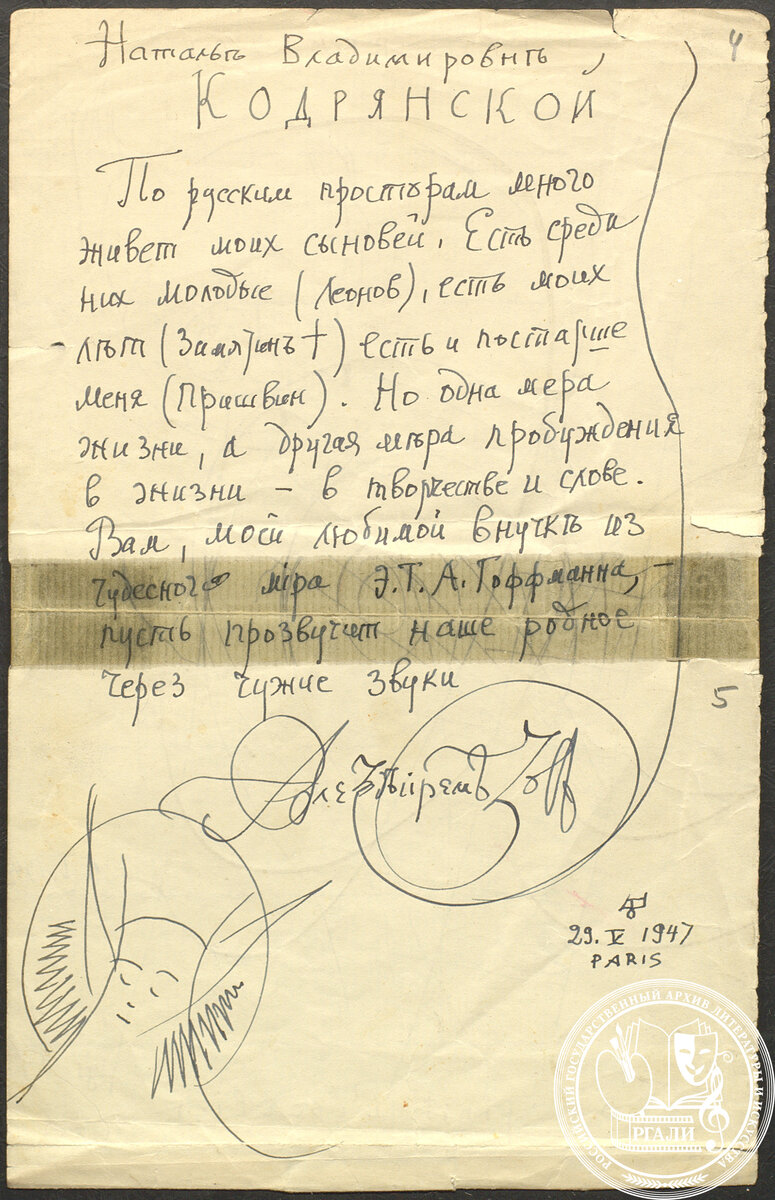 4
Натальѣ Владимировнѣ,
КОДРЯНСКОЙ
По русским просторам много
живет моих сыновей. Есть среди
них молодые (Леонов), есть моих
лѣт (Замятинъ †) есть и постарше
меня (Пришвин). Но одна мера
жизни, а другая мѣра пробуждения
в жизни – в творчестве и слове.
Вам, моей любимой внучкѣ из
чудесного мiра Э.Т.А. Гоффманна, –
пусть прозвучит наше родное
через чужие звуки
5
29. V 1947
PARIS
РОССИЙСКИЙ ГОСУДАРСТВЕННЫЙ АРХИВ ЛИТЕРАТУРЫ И ИСКУССТВА
РГАЛИ